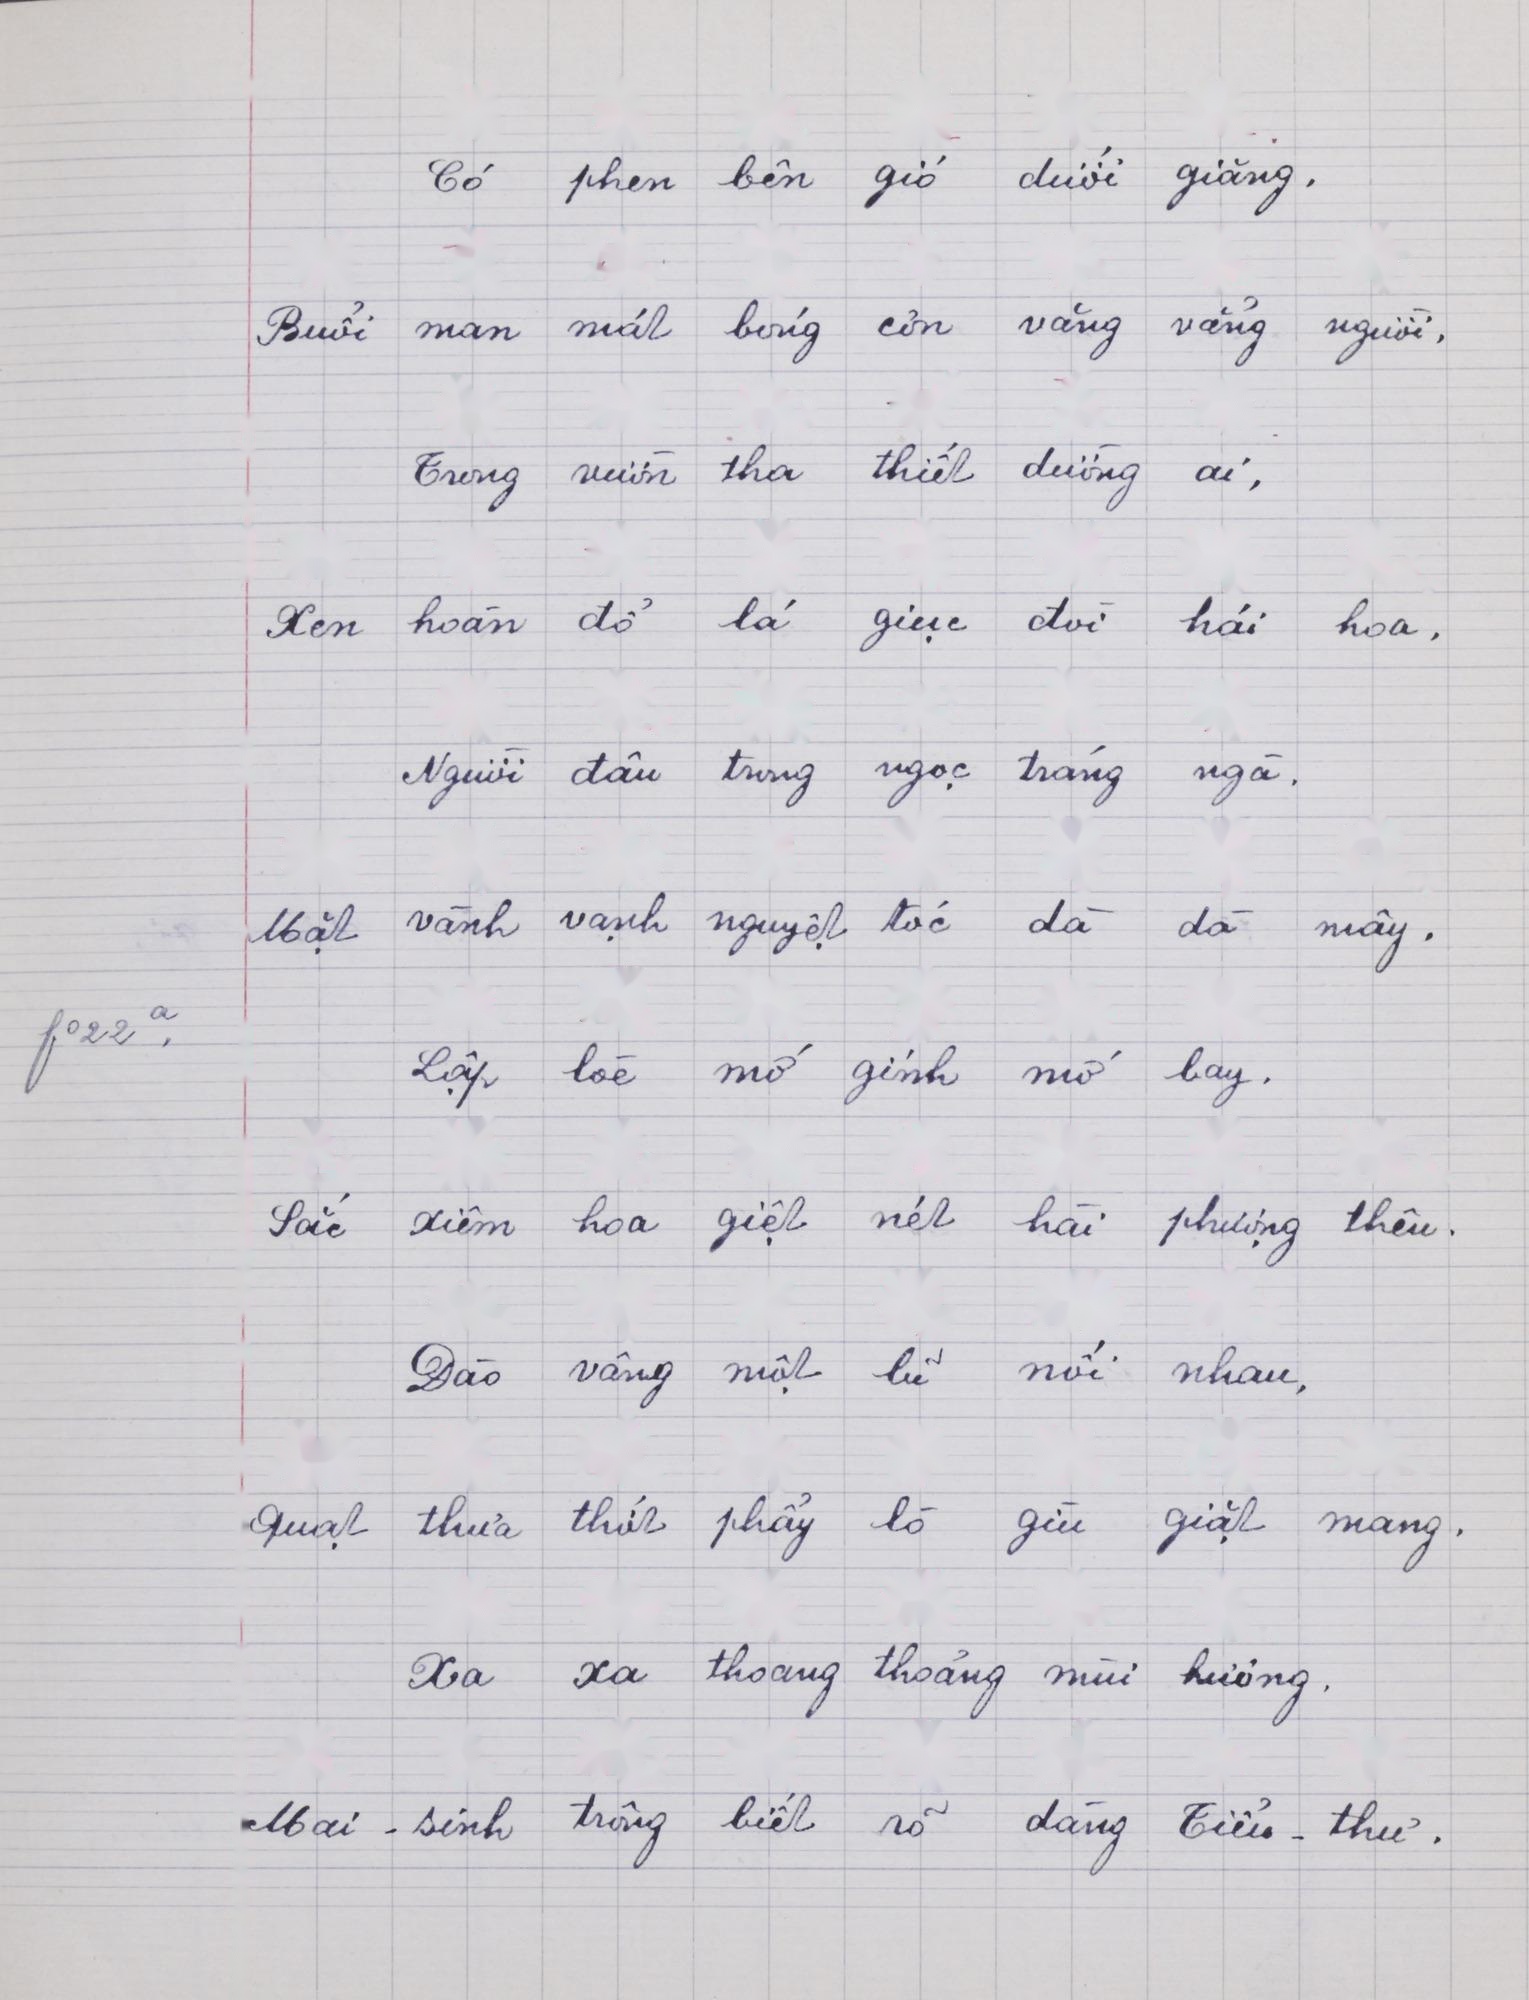 Có phen bên gió dưới giăng.
Buổi man mát bóng cơn văng vẳng người.
Trong vườn tha thiết dường ai,
Xen hoàn đổ lá giục đòi hái hoa.
Người đâu trong ngọc trắng ngà.
Mặt vành vạnh nguyệt tóc dà dà mây.
fº22ª.
Lập loè mớ gính mớ bay.
Sắc xiêm hoa giệt nét hài phượng thêu.
Dào vâng một lũ nối nhau,
Quạt thưa thớt phẩy lò giù giặt mang.
Xa xa thoang thoảng mùi hương.
Mai-sinh trông biết rõ dàng Tiểu-thư.